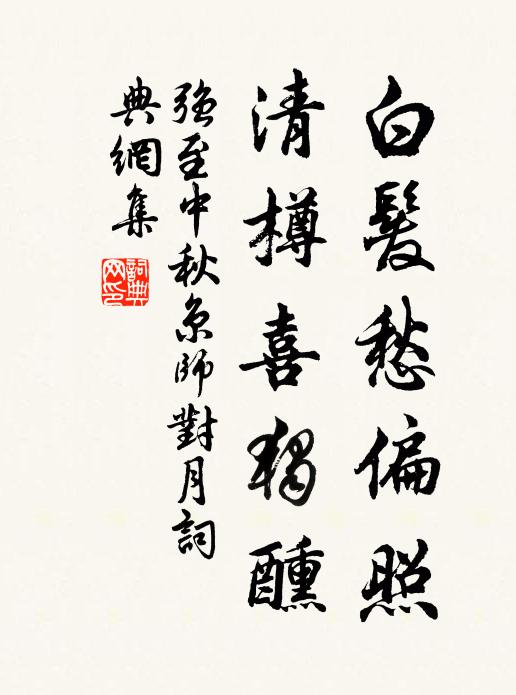 白髮愁偏照
清樽喜獨醺
強至中秋京師對月詞
典網集
詞典
网印